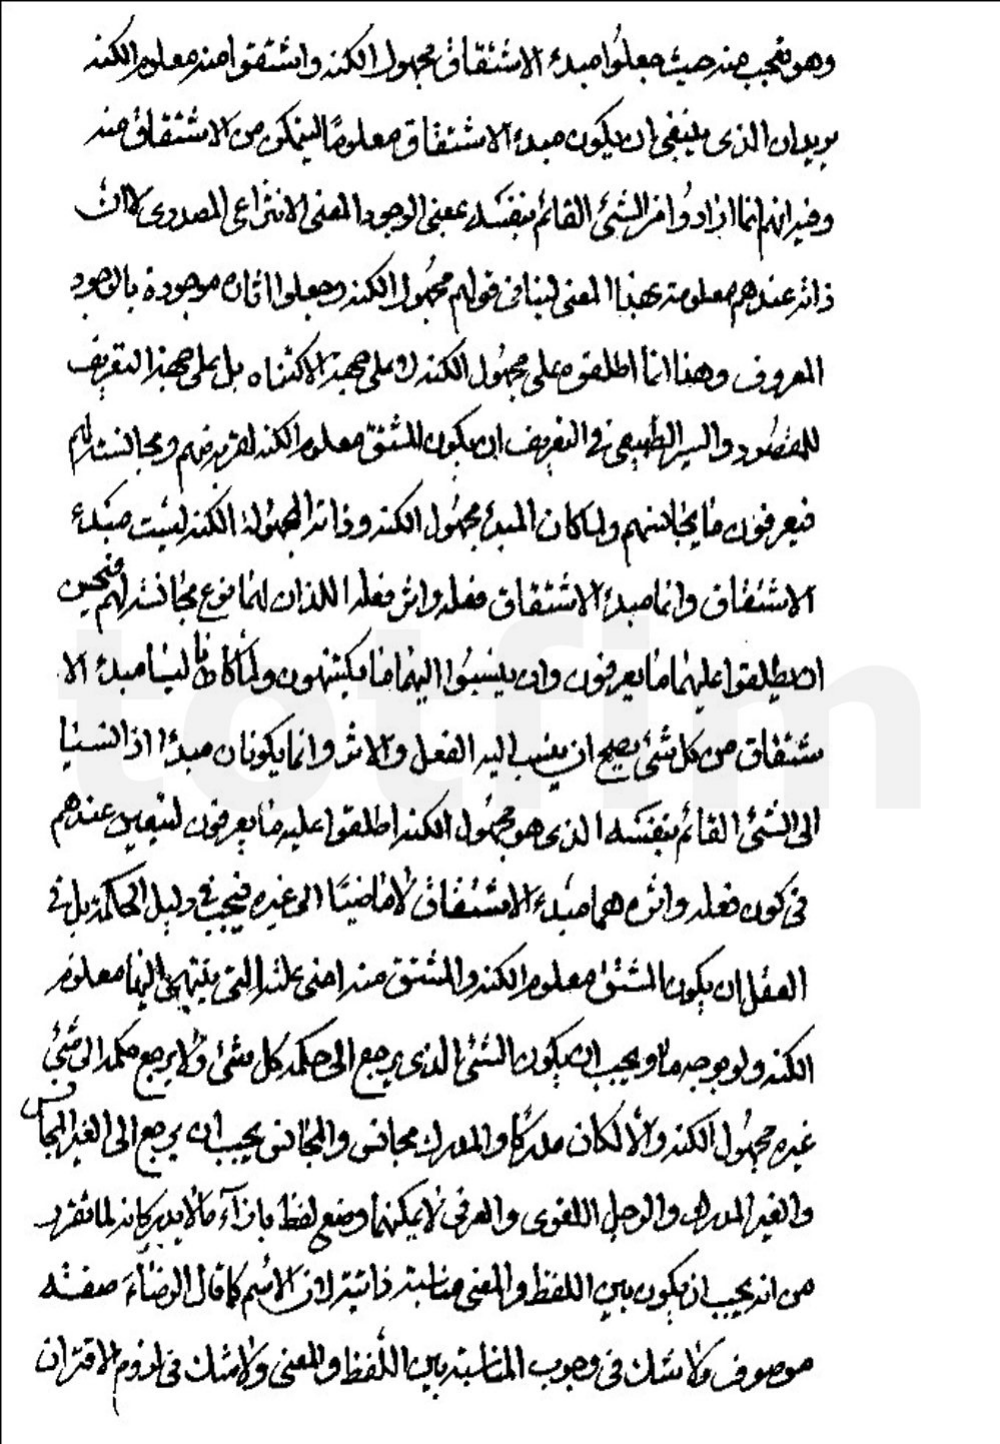 وهو تعجب منه حيث جعلوا مبدء الاشتقاق مجهول الكنه واشتقوا منه معلوم الكنه
يريد ان الذى ينبغى ان يكون مبدء الاشتقاق معلومًا ليتمكن من الاشتقاق منه
وفيه انهم انما ارادوا من الشئ القائم بنفسه بمعنى الوجود المعنى الانتزاعى المصدرى لا ان
ذاته عندهم معلومة بهذا المعنى لينافى قولهم مجهول الكنه وجعلوا اثاره موجودة بالوجود
المعروف وهذا انما اطلقوه على مجهول الكنه لا على جهة الاكتناه بل على جهة التعريف
للمقصود والسير الطبيعى فى التعريف ان يكون المشتق معلوم الكنه لقربه منهم ومجانسته لهم
فيعرفون ما يجانسهم ولما كان المبدء مجهول الكنه وذاته المجهولة الكنه ليست مبدء
الاشتقاق وانما مبدء الاشتقاق فعله واثر فعله اللذان لهما نوع مجانسة لهم فيحسن
ان يطلقوا عليهما ما يعرفون وان ينسبوا اليهما ما يكتنهون ولما كانا ليسا مبدء الا
شتقاق من كل شئ يصح ان ينسب اليه الفعل والاثر وانما يكونان مبدءا اذا نسبا
الى الشئ القائم بنفسه الذى هو مجهول الكنه اطلقوا عليه ما يعرفون ليتعين عندهم
فى كون فعله واثره هما مبدء الاشتقاق لا ما ضيا الى غيره فيجب فى دليل الحكمة بل فى
العقل ان يكون المشتق معلوم الكنه والمشتق منه اعنى علته التى ينتهى اليها معلوم
الكنه ولو بوجه ما ويجب ان يكون الشئ الذى يرجع الى حكمه كل شئ ولا يرجع حكمه الى شئ
غيره مجهول الكنه والا لكان مدركا والمدرك مجانس والمجانس يجب ان يرجع الى الغير المجانس
والغير المدرك والوجل اللغوى والعرفى لا يمكنهما وضع لفظ بازآء ما لا يدركانه لما تقرر
من انه يجب ان يكون بين اللفظ والمعنى مناسبة ذاتية لان الاسم كما قال الرضاء صفته
موصوف ولا شك فى وجوب المناسبة بين اللفظ والمعنى ولا شك فى لزوم الاقتران
totfim